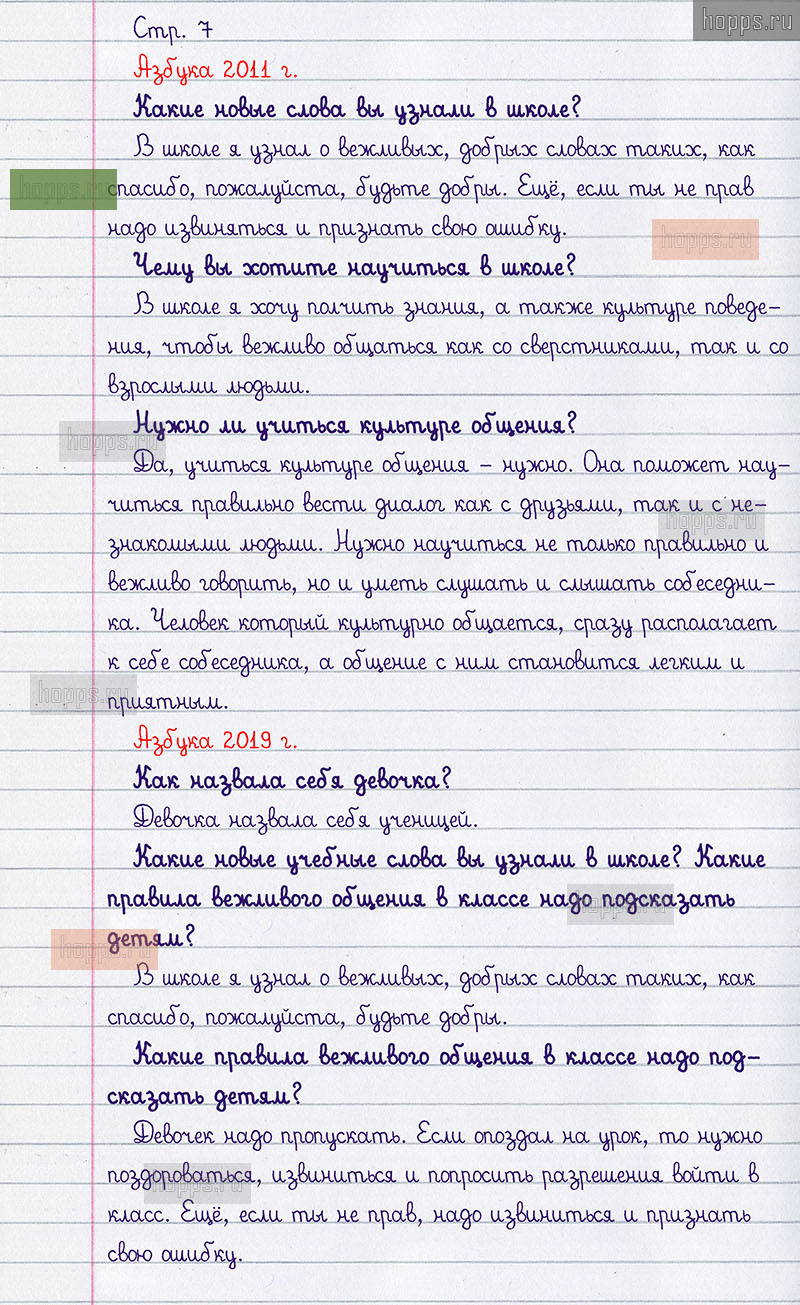 hopps.ru
Стр. 7
Азбука 2011 г.
Какие новые слова вы узнали в школе?
В школе я узнал о вежливых, добрых словах таких, как
hopps.ru
спасибо, пожалуйста, будьте добры. Ещё, если ты не прав
надо извиняться и признать свою ошибку.
hopps.ru
Чему вы хотите научиться в школе?
В школе я хочу полчить знания, а также культуре поведе-
ния, чтобы вежливо общаться как со сверстниками, так и со
взрослыми людьми.
Нужно ли учиться культуре общения?
hopps.ru
Да, учиться культуре общения – нужно. Она поможет нау-
читься правильно вести диалог как с друзьями, так и с не-
hopps.ru
знакомыми людьми. Нужно научиться не только правильно и
вежливо говорить, но и уметь слушать и слышать собеседни-
ка. Человек который культурно общается, сразу располагает
к себе собеседника, а общение с ним становится легким и
hopps.ru
приятным.
Азбука 2019 г.
Как назвала себя девочка?
Девочка назвала себя ученицей.
Какие новые учебные слова вы узнали в школе? Какие
правила вежливого общения в классе надо подсказать
hopps.ru
детям?
hopps.ru
В школе я узнал о вежливых, добрых словах таких, как
спасибо, пожалуйста, будьте добры.
Какие правила вежливого общения в классе надо под-
сказать детям?
Девочек надо пропускать. Если опоздал на урок, то нужно
поздороваться, извиниться и попросить разрешения войти в
hopps.ru
класс. Ещё, если ты не прав, надо извиниться и признать
свою ошибку.